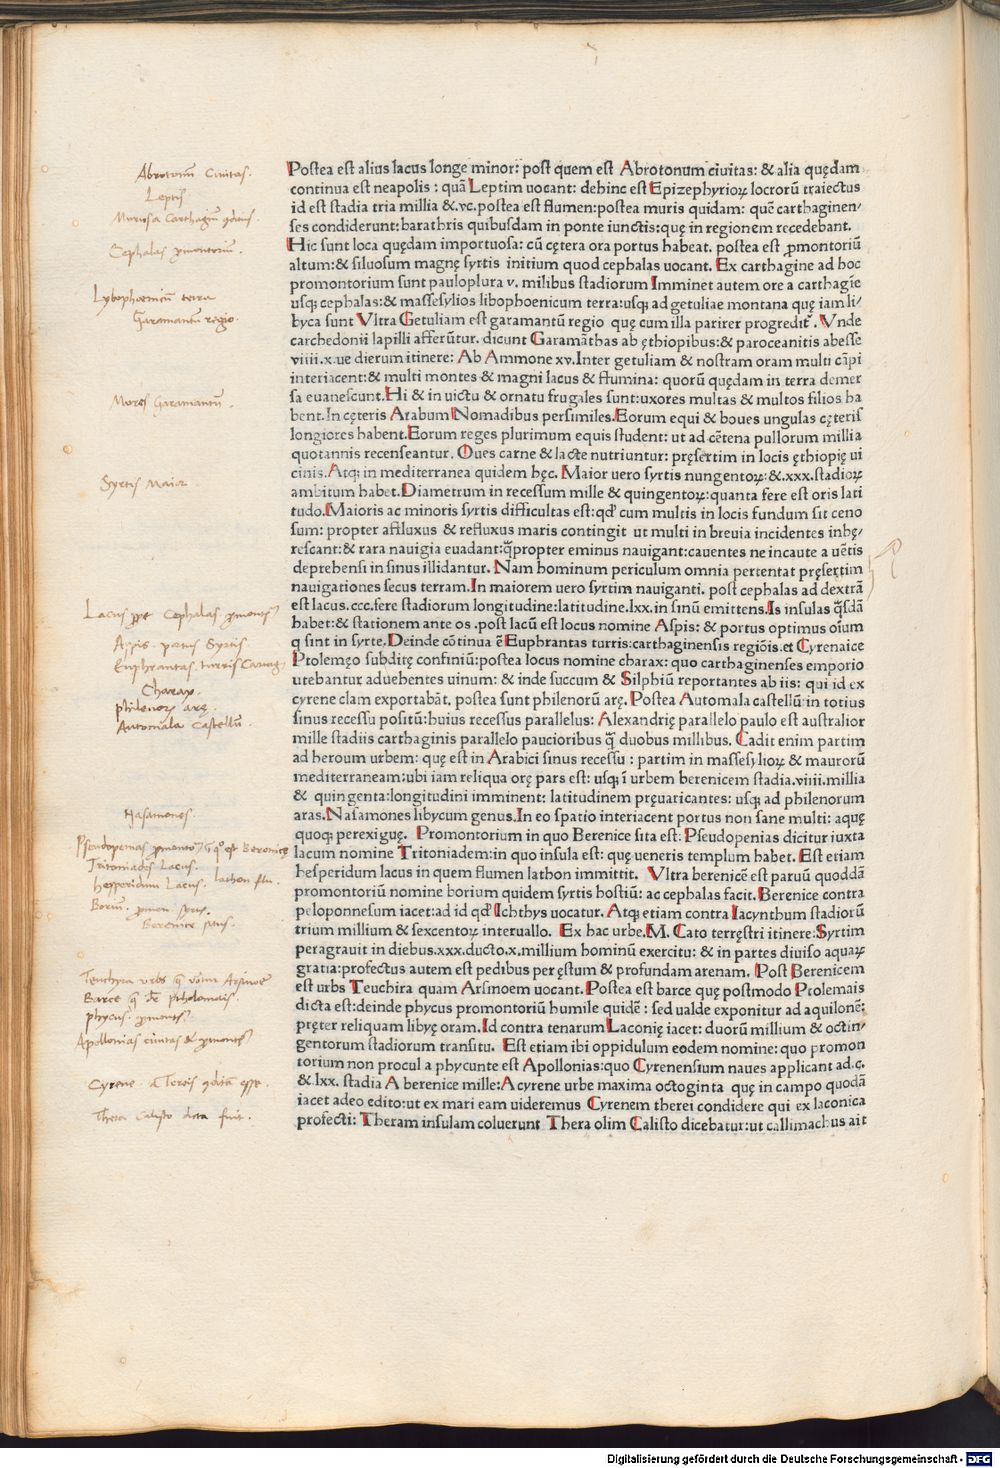 Postea est alius lacus longe minor: post quem est Abrotonum ciuitas: & alia quędam
continua est neapolis : quā Leptim uocant: dehinc est Epizephyrioꝝ locrorū traiectus
id est stadia tria millia &.vc.postea est flumen:postea muris quidam: quē carthaginen/
ses condiderunt:barathris quibusdam in ponte iunctis:quę in regionem recedebant.
Hic sunt loca quędam importuosa: cū cętera ora portus habeat. postea est ꝓmontoriū
altum:& siluosum magnę syrtis initium quod cephalas uocant. Ex carthagine ad hoc
promontorium sunt pauloplura v. milibus stadiorum Imminet autem ore a carthagie
usqꝫ cephalas:& massesylios libophoenicum terra:usqꝫ ad getuliae montana quę iam li/
byca sunt Vltra Getuliam est garamantū regio quę cum illa parirer progredit᷑. Vnde
carchedonii lapilli afferūtur. dicunt Garamāthas ab ęthiopibus:& paroceanitis abesse
viiii.x.ue dierum itinere: Ab Ammone xv.Inter getuliam & nostram oram multi cāpi
interiacent:& multi montes & magni lacus & flumina: quorū quędam in terra demer
sa euanescunt.Hi & in uictu & ornatu frugales sunt:uxores multas & multos filios ha
bent.In cęteris Arabum Nomadibus persimiles.Eorum equi & boues ungulas cęteris
longiores habent.Eorum reges plurimum equis student: ut ad cētena pullorum millia
quotannis recenseantur. Oues carne & lacte nutriuntur: pręsertim in locis ęthiopię ui
cinis.Atqꝫ in mediterranea quidem hęc. Maior uero syrtis nungentoꝝ:&.xxx.stadioꝝ
ambitum habet.Diametrum in recessum mille & quingentoꝝ:quanta fere est oris lati
tudo.Maioris ac minoris syrtis difficultas est:qđ cum multis in locis fundum sit ceno
sum: propter affluxus & refluxus maris contingit ut multi in breuia incidentes inhę/
rescant:& rara nauigia euadant:q̄propter eminus nauigant:cauentes ne incaute a uētis
deprehensi in sinus illidantur. Nam hominum periculum omnia pertentat pręsertim
nauigationes secus terram.In maiorem uero syrtim nauiganti. post cephalas ad dextrā
est lacus.ccc.fere stadiorum longitudine:latitudine.lxx.in sinū emittens.Is insulas q̄sdā
habet:& stationem ante os .post lacū est locus nomine Aspis: & portus optimus oīum
q sint in syrte.Deinde cōtinua ē Euphrantas turris:carthaginensis regiōis.et Cyrenaice
Ptolemęo subditę confiniū:postea locus nomine charax: quo carthaginenses emporio
utebantur aduehentes uinum: & inde succum & Silphiū reportantes ab iis: qui id ex
cyrene clam exportabāt, postea sunt philenorū arę. Postea Automala castellū:in totius
sinus recessu positū:huius recessus parallelus: Alexandrię parallelo paulo est australior
mille stadiis carthaginis parallelo paucioribus q̄ duobus millibus. Cadit enim partim
ad heroum urbem: quę est in Arabici sinus recessu : partim in massesylioꝝ & maurorū
mediterraneam:ubi iam reliqua orę pars est: usqꝫ ī urbem berenicem stadia.viiii.millia
& quingenta:longitudini imminent: latitudinem pręuaricantes: usqꝫ ad philenorum
aras.Nasamones libycum genus.In eo spatio interiacent portus non sane multi: aquę
quoqꝫ perexiguę. Promontorium in quo Berenice sita est: Pseudopenias dicitur iuxta
lacum nomine Tritoniadem:in quo insula est: quę ueneris templum habet. Est etiam
hesperidum lacus in quem flumen lathon immittit. Vltra berenicē est paruū quoddā
promontoriū nomine borium quidem syrtis hostiū: ac cephalas facit. Berenice contra
peloponnesum iacet:ad id qđ Ichthys uocatur. Atqꝫ etiam contra Iacynthum stadiorū
trium millium & sexcentoꝝ interuallo. Ex hac urbe.M. Cato terręstri itinere:Syrtim
peragrauit in diebus.xxx.ducto.x.millium hominū exercitu: & in partes diuiso aquaꝝ
gratia:profectus autem est pedibus per ęstum & profundam arenam. Post Berenicem
est urbs Teuchira quam Arsinoem uocant. Postea est barce quę postmodo Ptolemais
dicta est:deinde phycus promontoriū humile quidē : sed ualde exponitur ad aquilonē:
pręter reliquam libyę oram. Id contra tenarum Laconię iacet: duorū millium & octin/
gentorum stadiorum transitu. Est etiam ibi oppidulum eodem nomine: quo promon
torium non procul a phycunte est Apollonias:quo Cyrenensium naues applicant ad.c.
& lxx. stadia A berenice mille:A cyrene urbe maxima octoginta quę in campo quodā
iacet adeo edito:ut ex mari eam uideremus Cyrenem therei condidere qui ex laconica
profecti: Theram insulam coluerunt Thera olim Calisto dicebatur:ut callimachus ait
Abrotonū Ciuitas.
Leptis
Murus a Carthagin̄ 9ditus.
Cephalas ꝓmontoriū.
Lybophoenicū terra
Garamantū regio.
Mores Garamantū.
Syrtis Maior
Lacus ꝓpe Cephalas ꝓmont.
Aspis. portus Syrtis.
Euphrantas. turris Cartag
Charax.
philenoꝝ arę.
Automala Castellū.
Nasamones.
Pseudopenias ꝓmontoꝝ ī quo est Berenice
Tritoniadis Lacus.
hesperidum Lacus. lathon flu.
Boriū. ꝓmon. syrtis.
Berenice
Teuchira urbs Arsinoe
Barce ptholomais.
phycus. ꝓmont.
Apollonias ciuitas & ꝓmont
Cyrene. a Tereis 9ditā esse.
Thera Calisto dicta fuit.
Digitalisierung gefördert durch die Deutsche Forschungsgemeinschaft - DFG